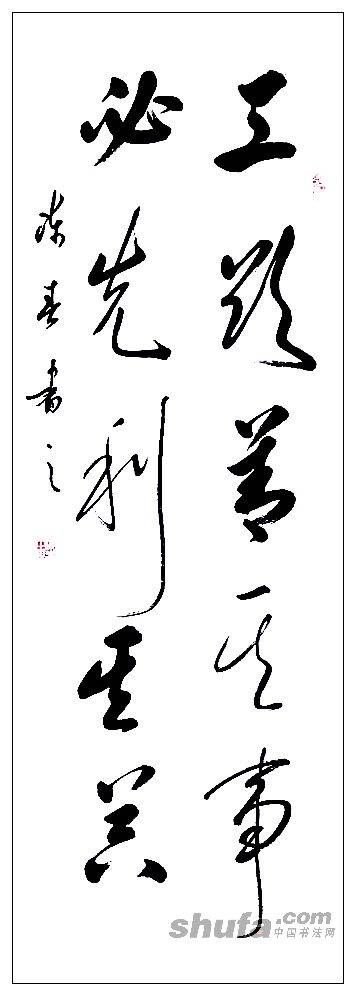 工欲善其事
必先利其器
陈春書之
shufa.com
中国书法网